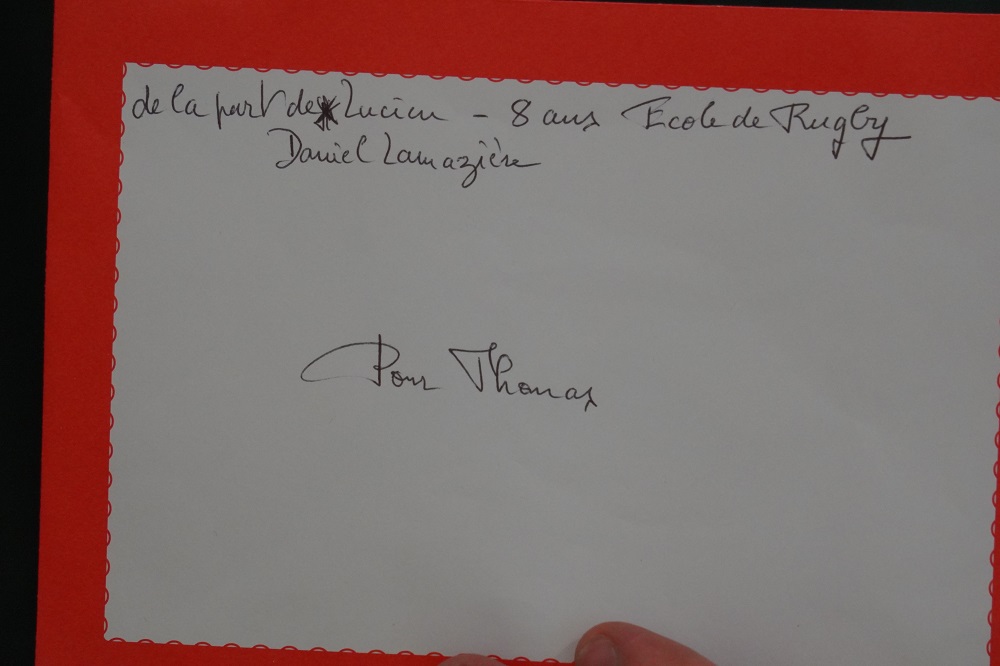 de la part de Lucien - 8 ans Ecole de Rugby
Daniel Lamazière
Pour Thomas